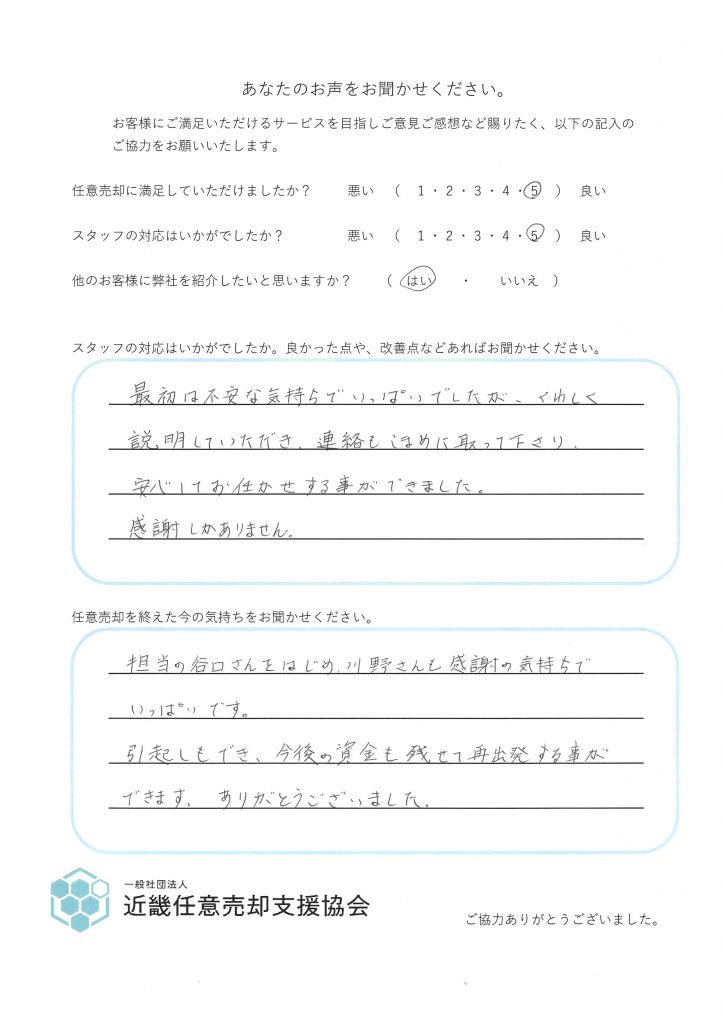 あなたのお声をお聞かせください。
お客様にご満足いただけるサービスを目指しご意見ご感想など賜りたく、以下の記入の
ご協力をお願いいたします。
任意売却に満足していただけましたか? 悪い ( 1・2・3・4・5 ) 良い
スタッフの対応はいかがでしたか? 悪い ( 1・2・3・4・5 ) 良い
他のお客様に弊社を紹介したいと思いますか? ( はい ・ いいえ )
スタッフの対応はいかがでしたか。良かった点や、改善点などあればお聞かせください。
最初は不安な気持ちでいっぱいでしたが、くわしく
説明していただき、連絡もこまめに取って下さり、
安心してお任かせする事ができました。
感謝しかありません。
任意売却を終えた今の気持ちをお聞かせください。
担当の谷口さんをはじめ、川野さんも感謝の気持ちで
いっぱいです。
引起しもでき、今後の資金も残せて再出発する事が
できます。 ありがとうございました。
一般社団法人
近畿任意売却支援協会
ご協力ありがとうございました。